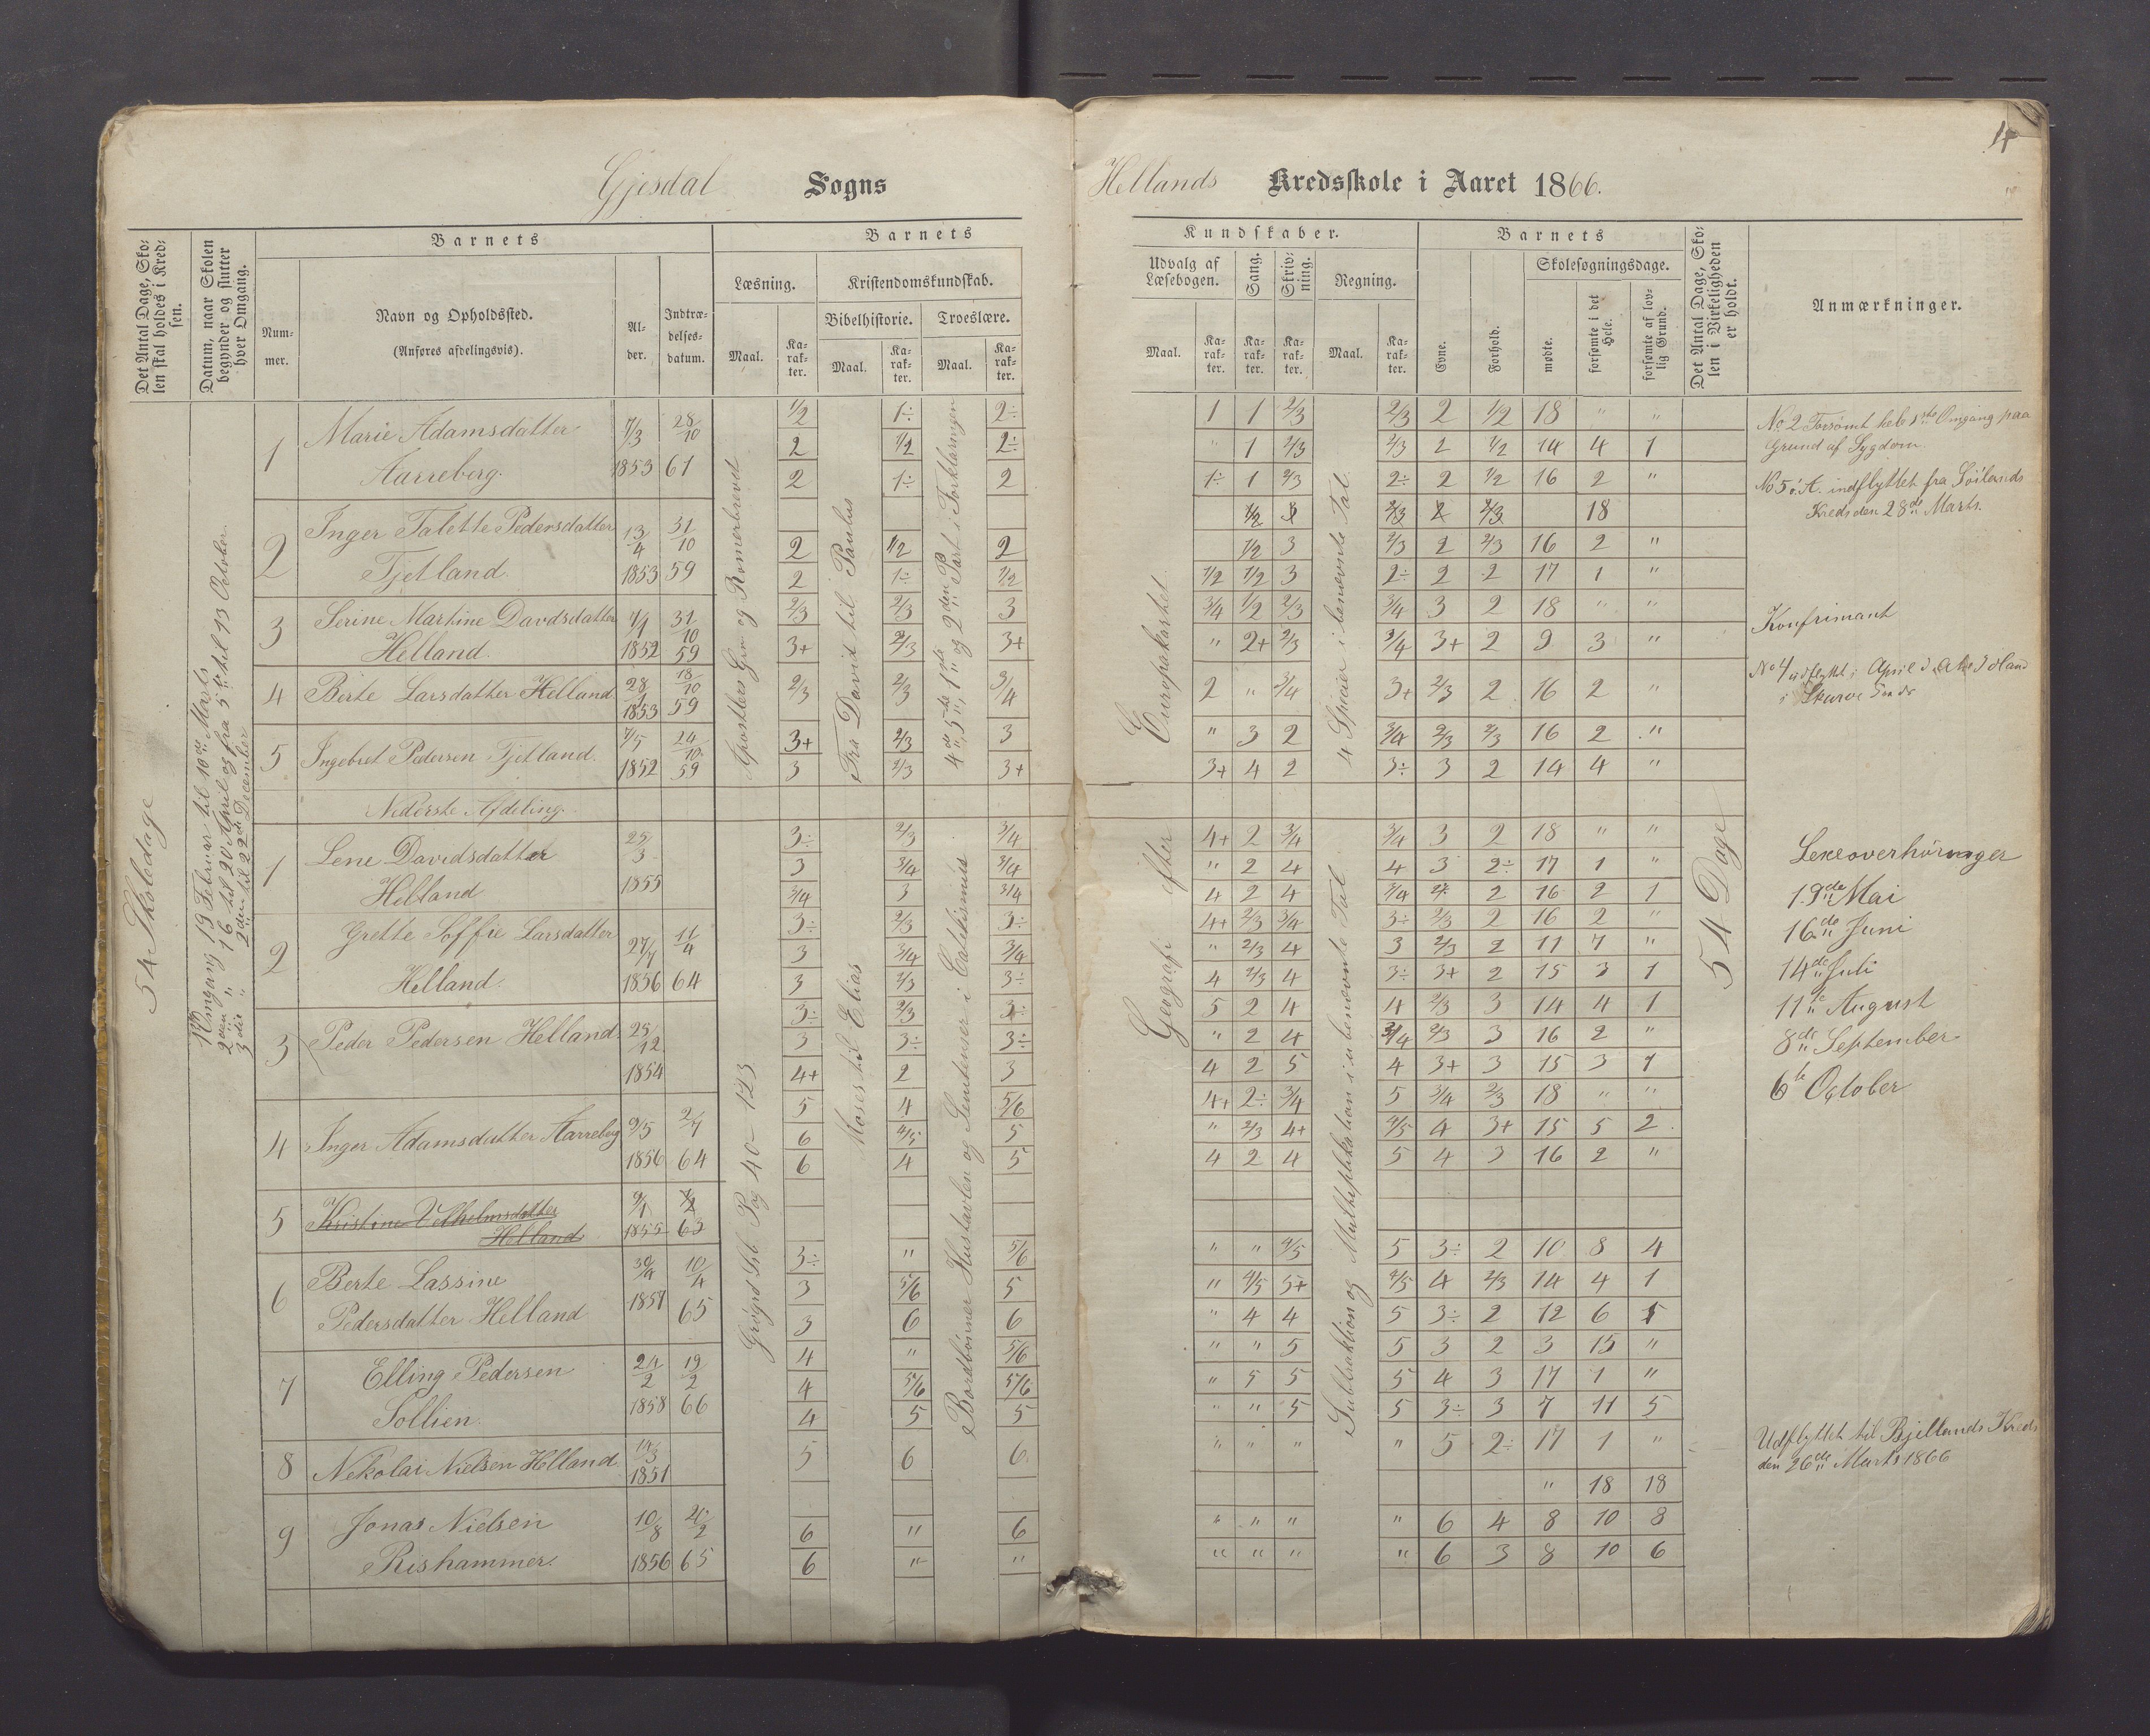 14
Gjesdal Sogns Hellands Kredsskole i Aaret 1866.
Det Antal Dage, Skolen skal holdes i Kredsen.
Datum, naar Skolen begynder og slutter hver Omgang.
Barnets
Nummer.
Navn og Opholdssted.
(Anføres afdelingsvis).
Alder.
Indtrædelsesdatum.
Barnets
Læsning.
Maal.
Karakter.
Kristendomskundskab.
Bibelhistorie.
Maal.
Karakter.
Troeslære.
Maal.
Karakter.
Kundskaber.
Udvalg af Læsebogen.
Maal.
Karakter.
Sang.
Karakter.
Skrivning.
Karakter.
Regning.
Maal.
Karakter.
Barnets
Evne.
Forhold.
Skolesøgningsdage.
mødte.
forsømte i det Hele.
forsømte af lovlig Grund.
Det Antal Dage, Skolen i Virkeligheden er holdt.
Anmærkninger.
54 Skoledage
1ste Omgang 19 Februar til 10de Marts
2den " 16 til 20 April og fra 5te til 13 October
3die " 2den til 22de December
Apostlers Gjer og Romerbrevet
Fra David til Paulus
4de, 5te, 1ste og 2den Part i Forklaringen
Europakartet
4 Specier i benævnte Tal
1 Marie Adamsdatter 7/3 28/10
Aarreberg. 1853 61
1/2 1÷ 2÷ 1 1 2/3 2/3 2 1/2 18 " "
2 1/2 2÷ " 1 2/3 2/3 2 1/2 14 4 1
2 1÷ 2 1÷ 1 2/3 2÷ 2 1/2 16 2 "
2 Inger Talette Pedersdatter 13/4 31/10
Tjetland. 1853 59
18
2 1/2 2 1/2 3 2/3 2 2/3 16 2 "
2 1÷ 1/2 1/2 1/2 3 2÷ 2 2 17 1 "
3 Serine Martine Davdsdatter 4/1 31/10
Helland. 1852 59
2/3 2/3 3 3/4 1/2 2/3 3/4 3 2 18 " "
3+ 2/3 3+ " 2+ 2/3 3/4 3+ 2 9 3 "
4 Berte Larsdatter Helland 28/1 18/10
1853 59
2/3 2/3 3/4 2 " 3/4 3+ 2/3 2 16 2 "
5 Ingebret Pedersen Tjetland. 7/5 24/10
1852 59
3+ 2/3 3 " 3 2 3/4 2/3 2/3 16 2 "
3 2/3 3+ 3+ 4 2 3÷ 3 2 14 4 "
Nederste Afdeling.
Grøgrd Lsb. Pag 40-123
Moses til Elias
Bordbønner Hustavlen og Sentenser i Catekismus
Geografi efter
Subtraktion og Multiplikation i ubenævnte Tal
54 Dage
1 Lene Davidsdatter 25/3
Helland 1855
3÷ 2/3 3/4 4+ 2 3/4 3/4 3 2 18 " "
3 3/4 3/4 " 2 4 4 3 2÷ 17 1 "
3/4 3 3/4 4 2 4 3/4 2 16 2 1
2 Grette Soffie Larsdatter 27/7 11/4
Helland. 1856 64
3÷ 2/3 3÷ 4+ 2/3 3/4 3÷ 2/3 2 16 2 "
3 3/4 3/4 " 2/3 4 3 2/3 2 11 7 "
3 2/3 3÷ 4 2/3 4 3÷ 3+ 2 15 3 1
3 Peder Pedersen Helland. 25/12
1854
3÷ 2/3 3÷ 5 2 4 4 2/3 3 14 4 1
3 3÷ 3÷ " 2 4 3/4 2/3 3 16 2 "
4+ 2 3 4 2 5 4 3+ 3 15 3 1
4 Inger Adamsdatter Aarreberg 9/5 2/7
1856 64
5 4 5/6 4+ 2÷ 3/4 5 3/4 2/3 18 " "
6 4/5 5 " 2/3 4+ 4/5 4 3+ 15 5 2
6 4 5 4 2 4 5 4 3 16 2 "
5 Kristine Velhelmsdatter 9/1
Helland 1855 63
6 Berte Lassine 30/4 10/4
Pedersdatter Helland 1857 65
3÷ " 5/6 " " 4/5 5 3÷ 2 10 8 4
3 5/6 5 " 4/5 5+ 4/5 4 2/3 14 4 1
3 6 6 " 4 4 5 3÷ 2 12 6 5
7 Elling Pedersen 24/2 19/2
Sollien. 1858 66
4 " 5/6 " " 5 5 3 2 3 15 "
4 5/6 5/6 " 5 5 5 4 3 17 1 "
4 5 5 " " 5 5 3÷ 3 7 11 5
8 Nekolai Nielsen Helland. 14/3
1851
5 6 6 " " " " 5 2÷ 17 1 "
" 18 18
9 Jonas Nielsen 10/8 20/2
Rishammer. 1856 65
6 " 6 " " " " 6 4 8 10 8
6 " " " " " " 6 3 8 10 6
No 2 Forsømt hele 1ste Omgang paa
Grund af Sygdom.
No 5 ø. A. indflyttet fra Søilands
Kreds den 28de Marts.
Konfirmant
No 4 udflyttet i April
i Skurve
Lexeoverhøringer
19de Mai
16de Juni
14de Juli
11te August
8de September
6te October
Udflyttet til Bjellands Kreds
den 26de Marts 1866